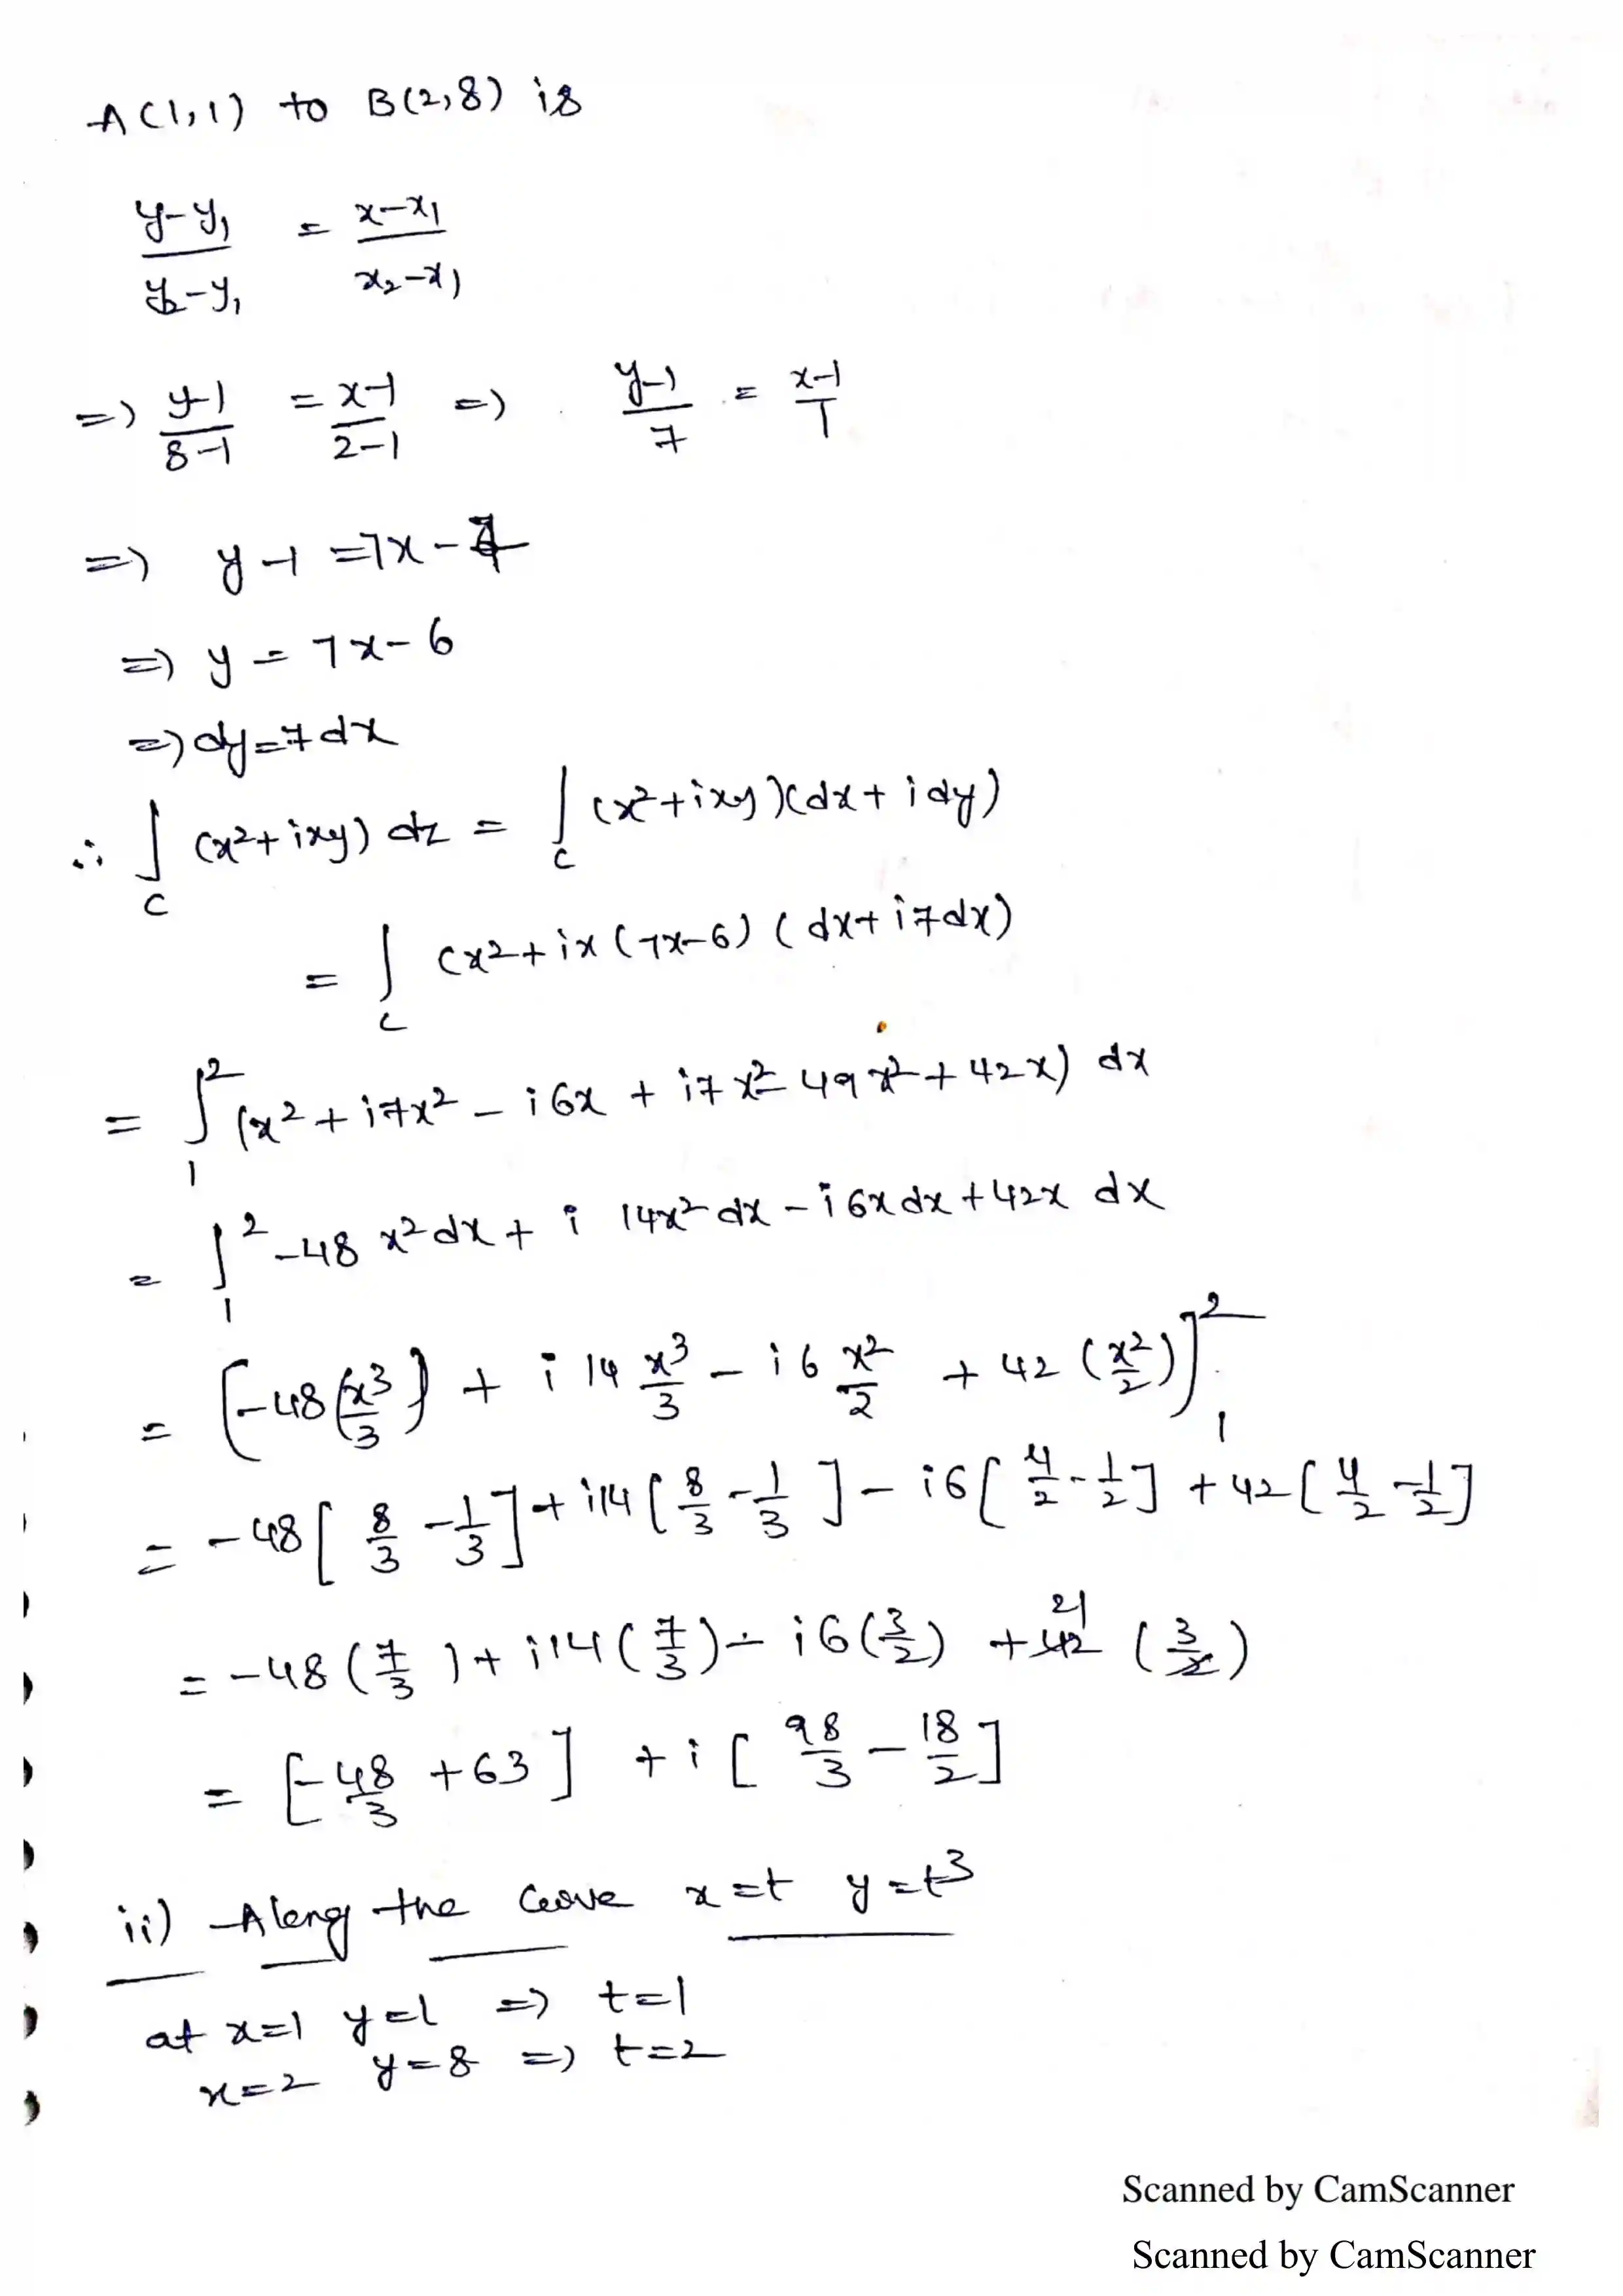 A(1,1) to B(2,8) is
y-y₁/y₂-y₁ = x-x₁/x₂-x₁
=) y-1/8-1 = x-1/2-1 =) y-1/7 = x-1/1
=) y-1 =7x-7
=) y = 7x-6
=) dy=7dx
∴ ∫_C (x²+ixy) dz = ∫_C (x²+ixy)(dx+idy)
= ∫_C (x²+ix(7x-6) (dx+i7dx)
= ∫₁² (x²+i7x²-i6x+i7x²-49x²+42x) dx
= ∫₁² -48 x²dx + i 14x²dx - i6xdx+42x dx
= [-48(x³/3) + i 14 x³/3 - i6 x²/2 + 42 (x²/2)]₁²
= -48[8/3-1/3]+i14[8/3-1/3]-i6[4/2-1/2]+42[4/2-1/2]
= -48(7/3)+i14(7/3)-i6(3/2)+42 21 (3/2)
= [-48/3+63] +i[98/3-18/2]
ii) Along the Curve x=t y=t³
at x=1 y=1 =) t=1
x=2 y=8 =) t=2
Scanned by CamScanner
Scanned by CamScanner